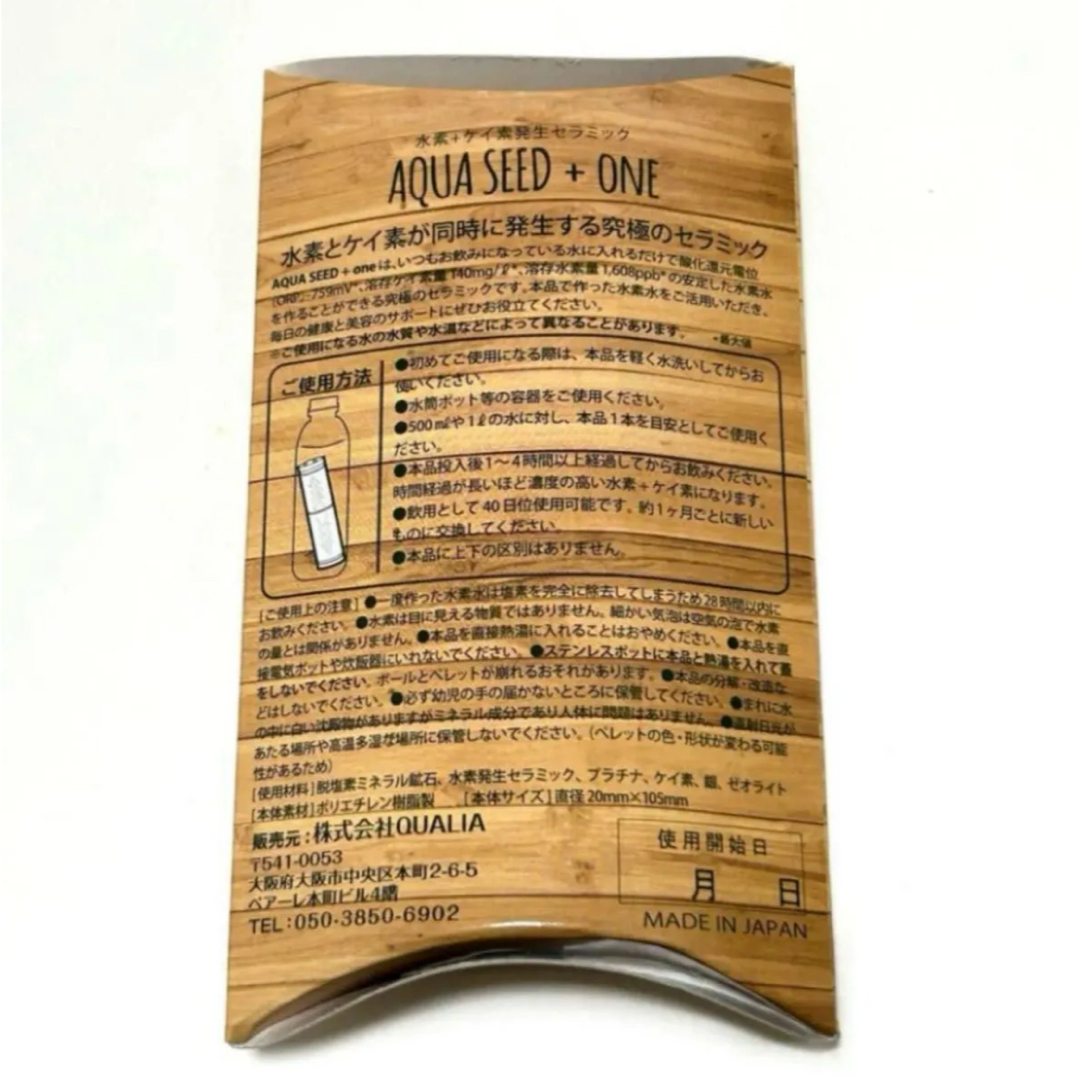 水素+ケイ素発生セラミック
AQUA SEED + ONE
水素とケイ素が同時に発生する究極のセラミック
AQUA SEED + oneは、いつもお飲みになっている水に入れるだけで酸化還元電位
(ORP)-759mV*、溶存ケイ素量140mg/ℓ*、溶存水素量1,608ppb*の安定した水素水
を作ることができる究極のセラミックです。本品で作った水素水をご活用いただき、
毎日の健康と美容のサポートにぜひお役立てください。
※ご使用になる水の水質や水温などによって異なることがあります。 *最大値
ご使用方法
●初めてご使用になる際は、本品を軽く水洗いしてからお
使いください。
●水筒ポット等の容器をご使用ください。
●500㎖や1ℓの水に対し、本品1本を目安としてご使用く
ださい。
●本品投入後1〜4時間以上経過してからお飲みください。
時間経過が長いほど濃度の高い水素+ケイ素になります。
●飲用として40日位使用可能です。約1ヶ月ごとに新しい
ものに交換してください。
●本品に上下の区別はありません。
[ご使用上の注意] ●一度作った水素水は塩素を完全に除去してしまうため28時間以内に
お飲みください。●水素は目に見える物質ではありません。細かい気泡は空気の泡で水素
の量とは関係がありません。●本品を直接熱湯に入れることはおやめください。●本品を直
接電気ポットや炊飯器にいれないでください。●ステンレスポットに本品と熱湯を入れて蓋
をしないでください。ボールとペレットが崩れるおそれがあります。●本品の分解・改造な
どはしないでください。●必ず幼児の手の届かないところに保管してください。●まれに水
の中に白い沈殿物がありますがミネラル成分であり人体に問題はありません。●直射日光が
あたる場所や高温多湿な場所に保管しないでください。(ペレットの色・形状が変わる可能
性があるため)
[使用材料]脱塩素ミネラル鉱石、水素発生セラミック、プラチナ、ケイ素、銀、ゼオライト
[本体素材]ポリエチレン樹脂製 [本体サイズ]直径20mm×105mm
販売元:株式会社QUALIA
〒541-0053
大阪府大阪市中央区本町2-6-5
ペアーレ本町ビル4階
TEL:050-3850-6902
使用開始日
月 日
MADE IN JAPAN